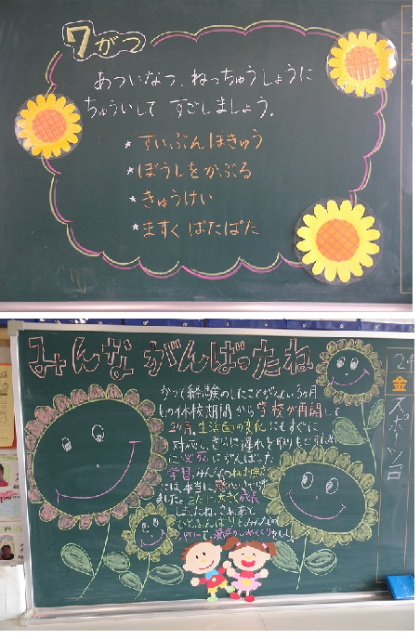 7がつ
あついなつ、ねっちゅうしょうに
ちゅういして すごしましょう。
★すいぶんほきゅう
★ぼうしをかぶる
★きゅうけい
★ますく ぱたぱた
みんながんばったね
かつて経験のしたことがない3ヶ月
もの休校期間から学校が再開して
2ヶ月、生活面の変化にもすぐに
対応し、さらに遅れを取りもどすため
に必死にがんばった
学習。みんなの
には本当に感心して
ました。大きく成長
しましたね。さあ、あと
ひとふんばり
金